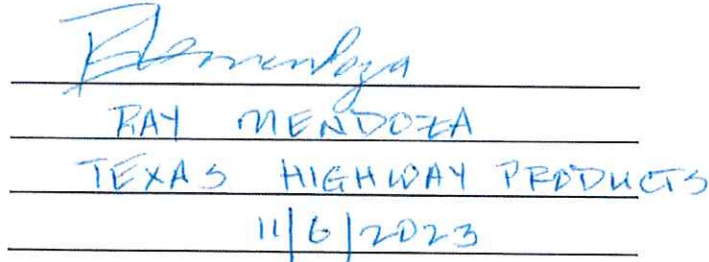 RAY MENDOZA
TEXAS HIGHWAY PRODUCTS
11/6/2023